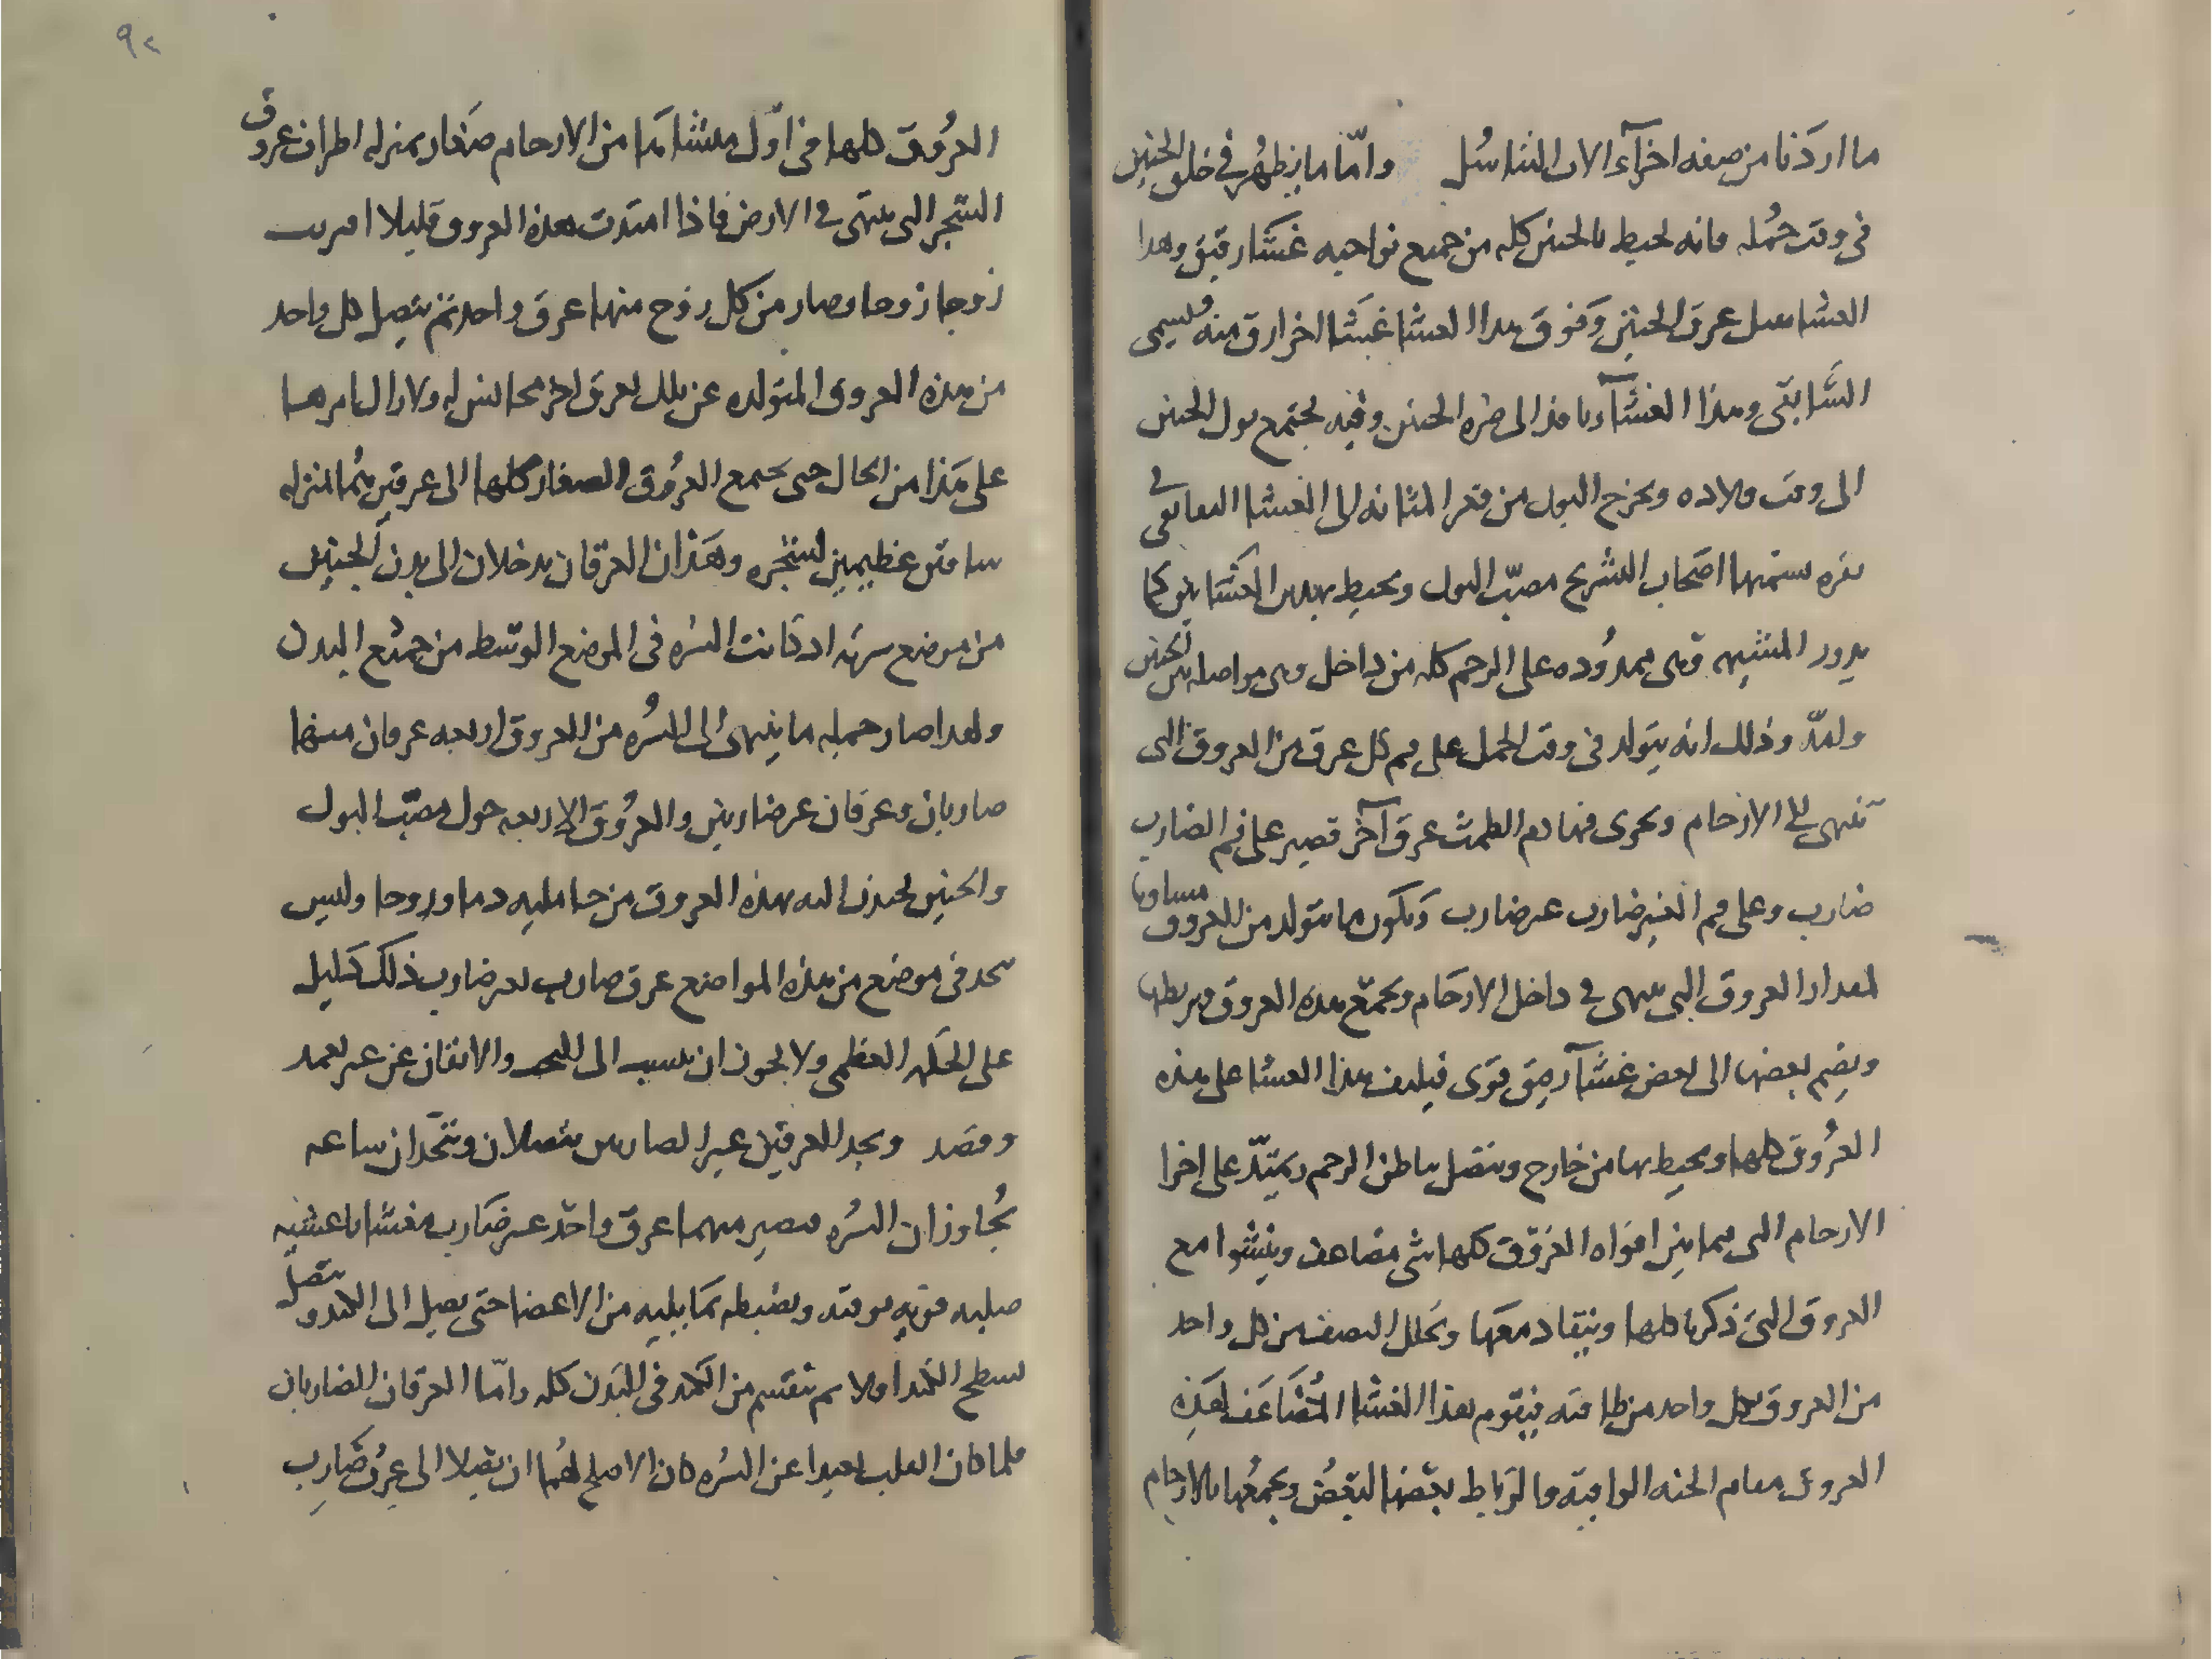 ما اردنا من صفه اجزآء الات التناسل وامّا ما يظهر في خلق الجنين
في وقت حمله فانه يحيط بالجنين كله من جميع نواحيه غشا رقيق وهذا
الغشا يقبل عرق الجنين وفوق هذا الغشا غشا اخر ارق منه ويسمى
السّابقى وهذا الغشآ نافذ الى صره الجنين وفيه يجتمع بول الجنين
الى وقت ولاده ويخرج البول من قعر المثانه الى الغشا اللفايفى في
يسميها اصحاب التشريح مصبّ البول ويحيط بهذين الغشاين كما
يدور المشيمه وهى ممدوده على الرحم كله من داخل وهى مواصله بين الجنين
وامّه وذلك انه يتولد في وقت الحمل على فم كل عرق من العروق التى
تنتهى الى الارحام ويجرى فيها دم الطمث عرق آخر قصير على فم الضارب
ضارب وعلى فم الغير ضارب غير ضارب ويكون ما يتولد من العروق مساويا
لمقدار العروق التى ينتهى في داخل الارحام ويجمع هذه العروق ويربطها
ويضم بعضها الى بعض غشآ رقيق قوى فيلتف هذا الغشا على هذه
العروق كلها ويحيط بها من خارج ويتصل بباطن الرحم ويمتدّ على اجزا
الارحام التى فيما بين افواه العروق كلها شى مضاعف وينشوا مع
العروق التى ذكرنا كلها وينقاد معها ويخلل النصف من كل واحد
من العروق بكل واحد من طاقيه فيقوم هذا الغشا المضاعف لهذه
العروق مقام الجنه الواقيه والرباط بعضها لبعض ويجمعها بالارحام
العروق كلها في اوّل منشاها من الارحام صغار بمنزله اطراف عروق
الشجر التى ينتهى في الارض فاذا امتدت هذه العروق قليلا اقتربت
زوجا زوجا وصار من كل زوج منها عرق واحد ثم يتصل كل واحد
من هذه العروق المتولده عن تلك بعرق اخر مجانس له ولا يزال امرها
على هذا من الحال حتى يجتمع العروق الصغار كلها الى عرقين هما بمنزله
ساقين عظيمين لشجره وهذان العرقان يدخلان الى بدن الجنين
من موضع سرته اذ كانت السره في الموضع الوسط من جميع البدن
ولهذا صار جمله ما ينتهى الى السُره من العروق اربعه عرقان منها
ضاربان وعرقان غير ضاربين والعروق الاربعه حول مصبّ البول
والجنين يجذب اليه بهذه العروق من حامليه دما وروحا وليس
تجد في موضع من هذه المواضع عرق ضارب لغير ضارب ذلك كليل
على الحكمه العظمى ولا يجوز ان ينسب الى البخت والاتفاق عن غير تعمد
وقصد ويجد العرقين غير الضاربين يتصلان ويتّحدان ساعه
يُجاوزان السُره فيصير منهما عرق واحد غير ضارب مغشا باغشيه
صلبه قويه توقيه وبضبطه بما يليه من الاعضا حتى يصل الى الكبد ويتصل
بسطح الكبد اولا ثم تنقسم من الكبد في البدن كله وامّا العرقان الضاربان
فلما كان القلب بعيدا عن السره كان الاصلح لهما ان يتصلا الى عرق ضارب